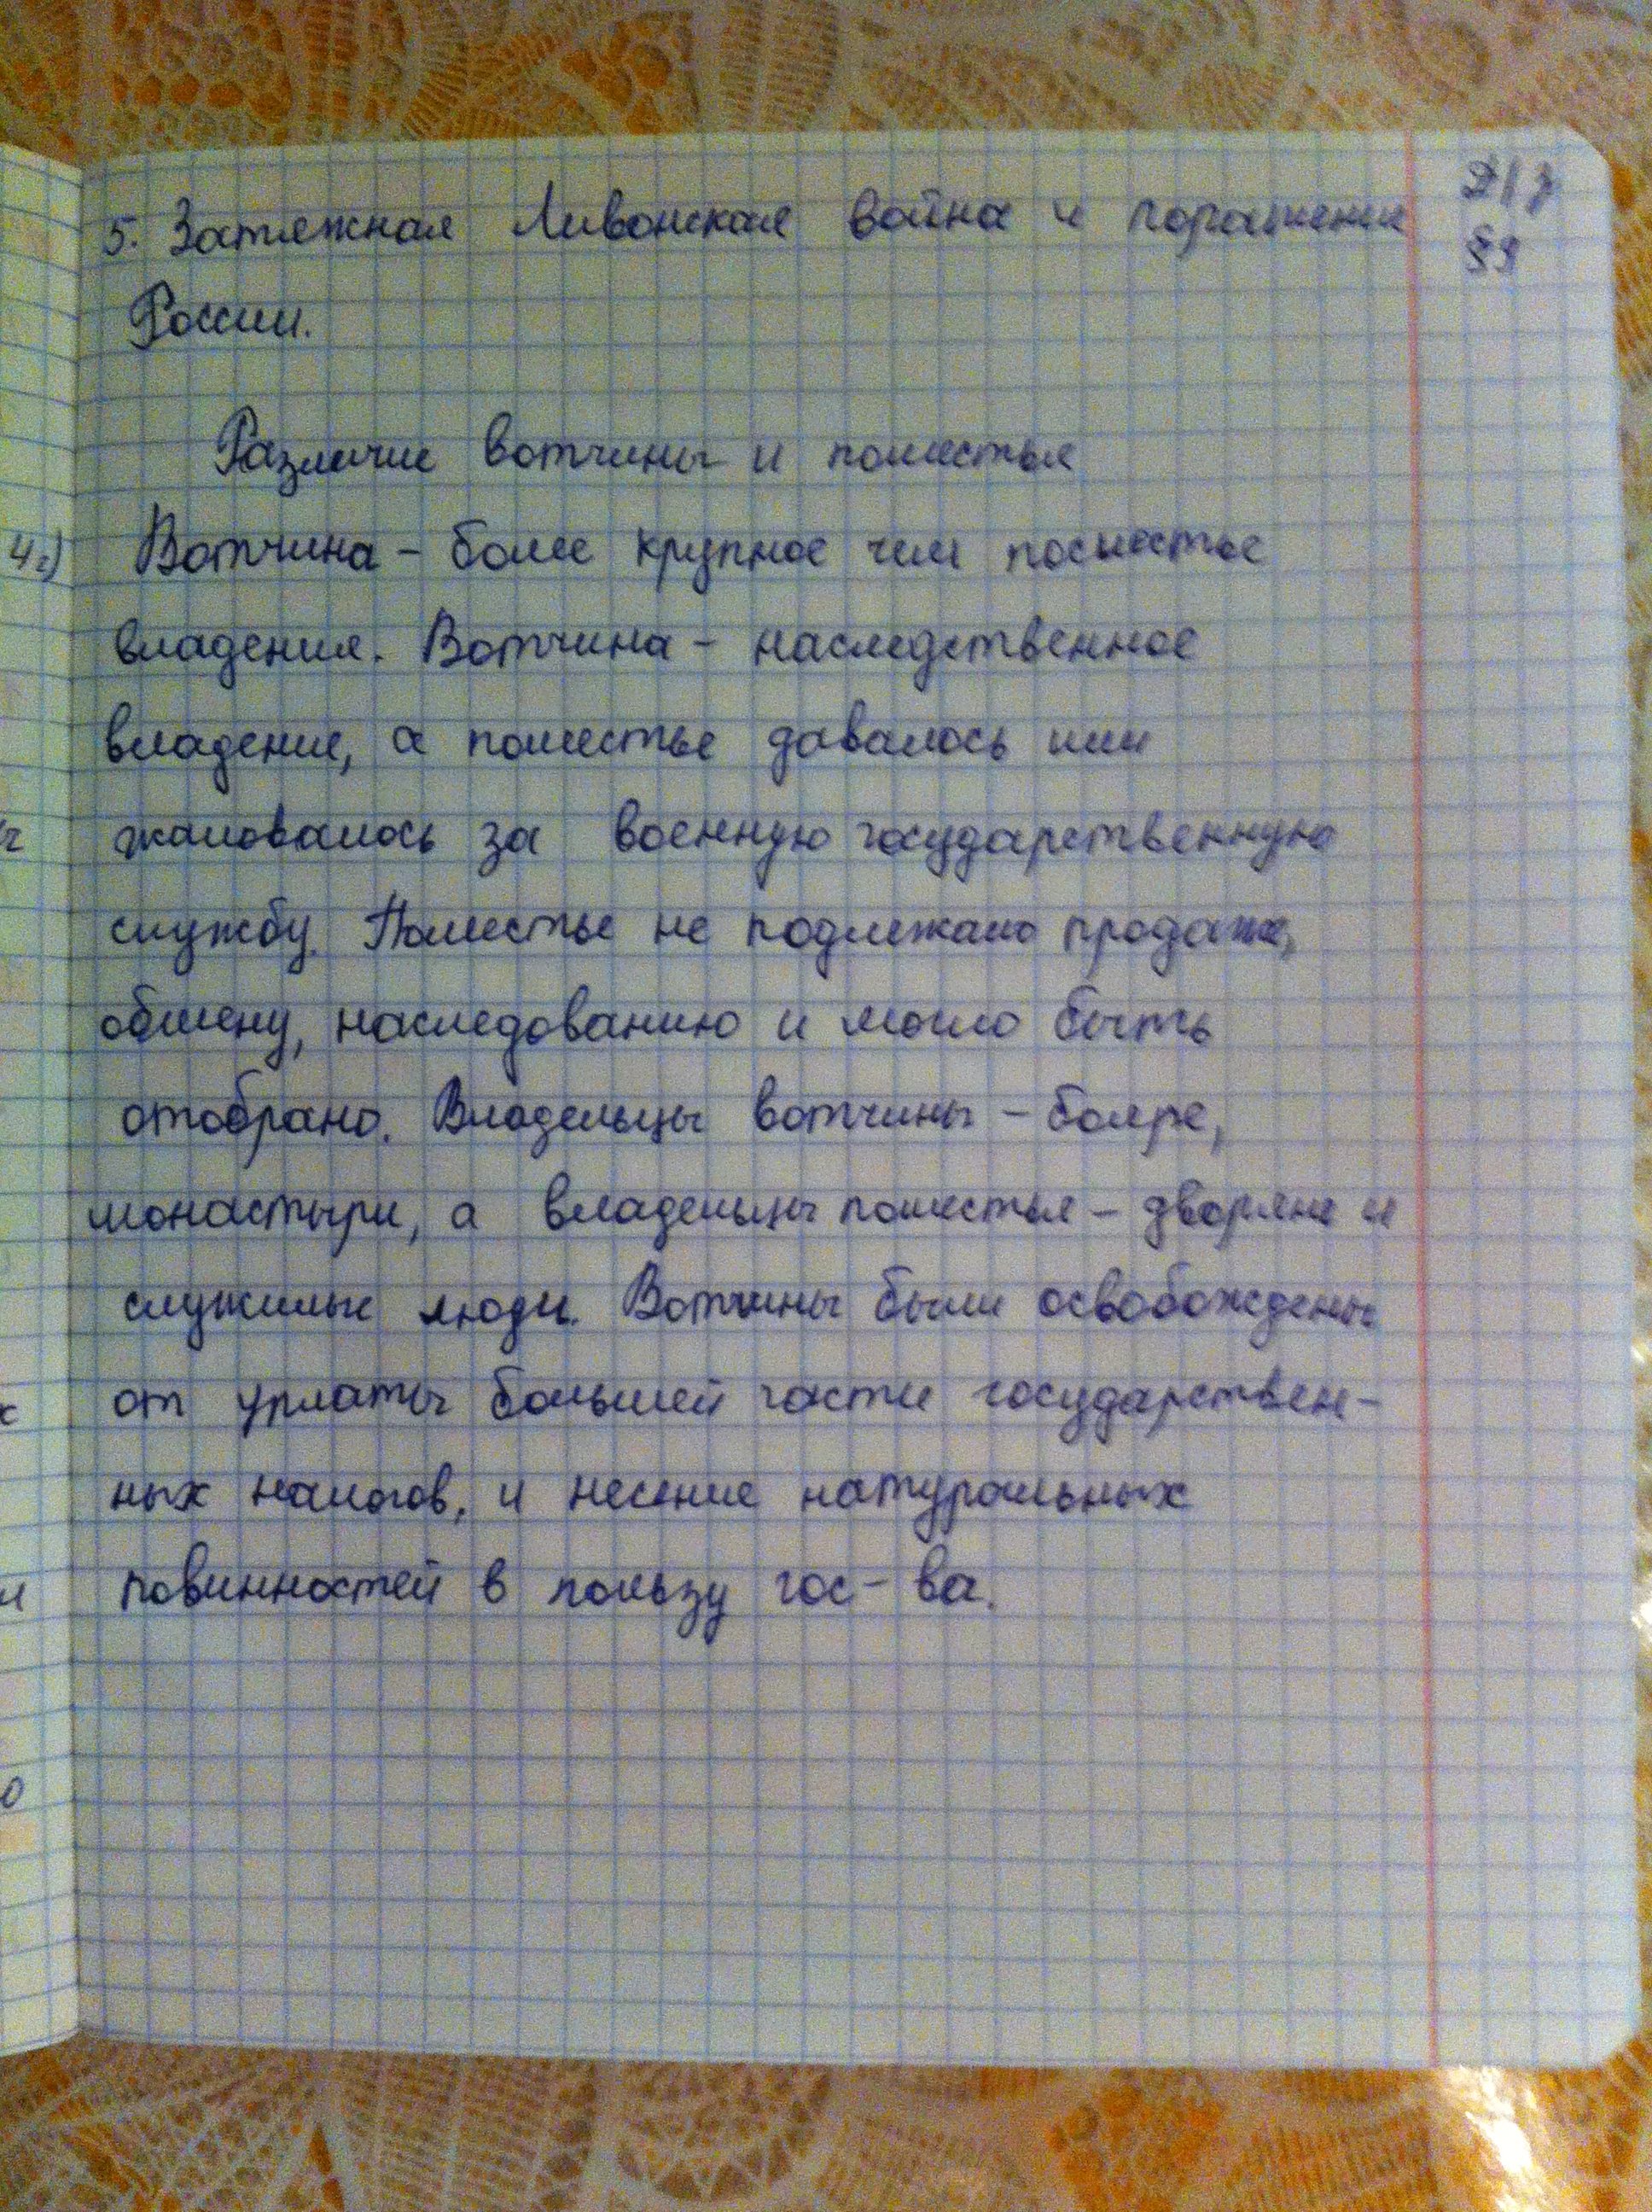 5. Затяжная Ливонская война и поражение
Д/з
§9
России.
Различие вотчины и поместья
Вотчина - более крупное чем посместье
владения. Вотчина - наследственное
владение, а поместье давалось или
жаловалось за военную государственную
службу. Поместье не подлежало продаже,
обмену, наследованию и могло быть
отобрано. Владельцы вотчины - бояре,
монастыри, а владельцы поместья - дворяне и
служилые люди. Вотчины были освобождены
от уплаты большей части государствен-
ных налогов, и несение натуральных
повинностей в пользу гос-ва.